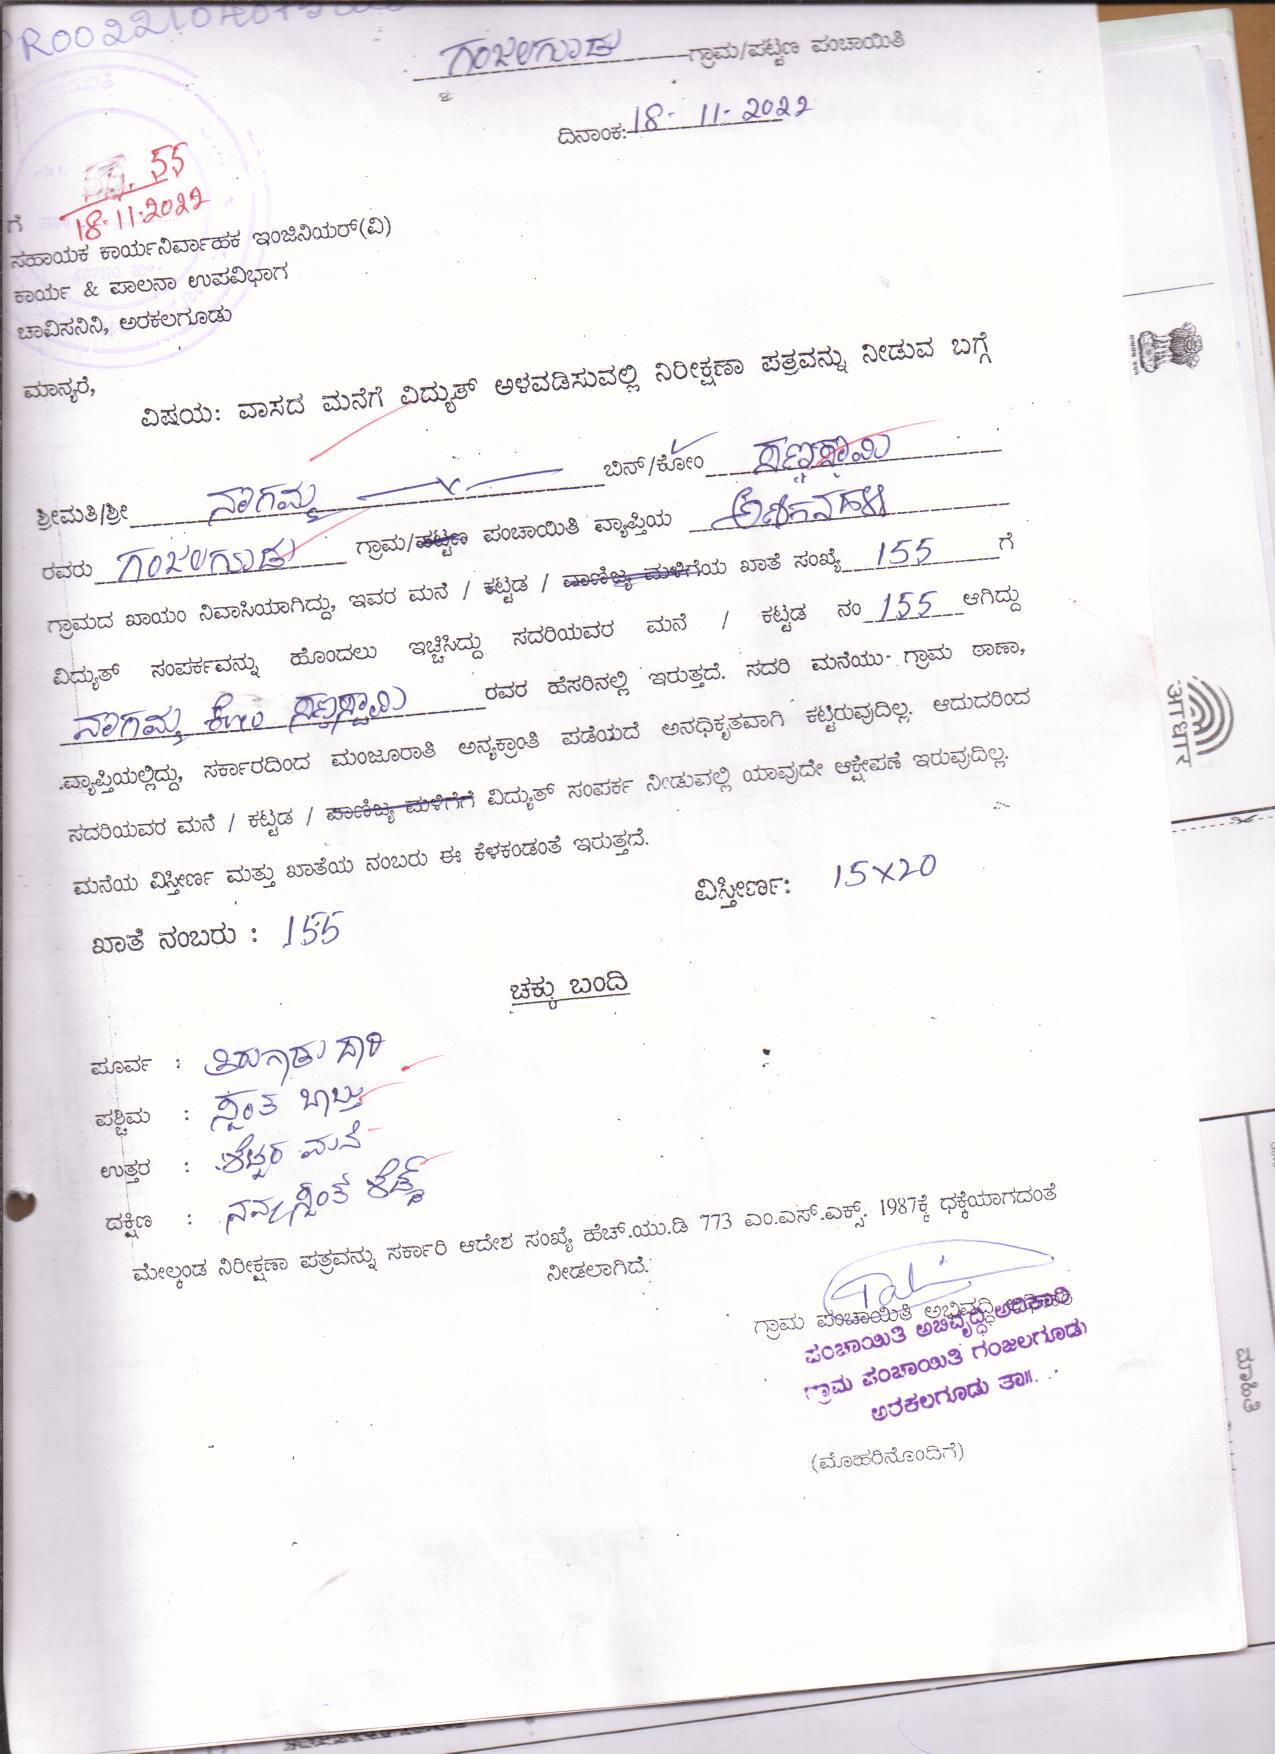 ಗಂಜಲಗೂಡು ಗ್ರಾಮ/ಪಟ್ಟಣ ಪಂಚಾಯಿತಿ
ದಿನಾಂಕ: 18-11-2022
55
18-11-2022
ಗೆ
ಸಹಾಯಕ ಕಾರ್ಯನಿರ್ವಾಹಕ ಇಂಜಿನಿಯರ್(ವಿ)
ಕಾರ್ಯ & ಪಾಲನಾ ಉಪವಿಭಾಗ
ಚಾವಿಸನಿನಿ, ಅರಕಲಗೂಡು
ಮಾನ್ಯರೆ,
ವಿಷಯ: ವಾಸದ ಮನೆಗೆ ವಿದ್ಯುತ್ ಅಳವಡಿಸುವಲ್ಲಿ ನಿರೀಕ್ಷಣಾ ಪತ್ರವನ್ನು ನೀಡುವ ಬಗ್ಗೆ
ಶ್ರೀಮತಿ/ಶ್ರೀ ನಾಗಮ್ಮ ಬಿನ್/ಕೋಂ ಸಣ್ಣಸ್ವಾಮಿ
ರವರು ಗಂಜಲಗೂಡು ಗ್ರಾಮ/ಪಟ್ಟಣ ಪಂಚಾಯಿತಿ ವ್ಯಾಪ್ತಿಯ
ಗ್ರಾಮದ ಖಾಯಂ ನಿವಾಸಿಯಾಗಿದ್ದು, ಇವರ ಮನೆ / ಕಟ್ಟಡ / ವಾಣಿಜ್ಯ ಮಳಿಗೆಯ ಖಾತೆ ಸಂಖ್ಯೆ 155 ಗೆ
ವಿದ್ಯುತ್ ಸಂಪರ್ಕವನ್ನು ಹೊಂದಲು ಇಚ್ಚಿಸಿದ್ದು ಸದರಿಯವರ ಮನೆ / ಕಟ್ಟಡ ನಂ 155 ಆಗಿದ್ದು
ನಾಗಮ್ಮ ಕೋಂ ಸಣ್ಣಸ್ವಾಮಿ ರವರ ಹೆಸರಿನಲ್ಲಿ ಇರುತ್ತದೆ. ಸದರಿ ಮನೆಯು ಗ್ರಾಮ ಠಾಣಾ,
ವ್ಯಾಪ್ತಿಯಲ್ಲಿದ್ದು, ಸರ್ಕಾರದಿಂದ ಮಂಜೂರಾತಿ ಅನ್ಯಕ್ರಾಂತಿ ಪಡೆಯದೆ ಅನಧಿಕೃತವಾಗಿ ಕಟ್ಟಿರುವುದಿಲ್ಲ. ಆದುದರಿಂದ
ಸದರಿಯವರ ಮನೆ / ಕಟ್ಟಡ / ವಾಣಿಜ್ಯ ಮಳಿಗೆಗೆ ವಿದ್ಯುತ್ ಸಂಪರ್ಕ ನೀಡುವಲ್ಲಿ ಯಾವುದೇ ಆಕ್ಷೇಪಣೆ ಇರುವುದಿಲ್ಲ.
ಮನೆಯ ವಿಸ್ತೀರ್ಣ ಮತ್ತು ಖಾತೆಯ ನಂಬರು ಈ ಕೆಳಕಂಡಂತೆ ಇರುತ್ತದೆ.
ಖಾತೆ ನಂಬರು : 155 ವಿಸ್ತೀರ್ಣ: 15x20
ಚಕ್ಕು ಬಂದಿ
ಪೂರ್ವ : ತಿರುಗಾಡು ದಾರಿ
ಪಶ್ಚಿಮ : ಸ್ವಂತ
ಉತ್ತರ : ಮನೆ
ದಕ್ಷಿಣ :
ಮೇಲ್ಕಂಡ ನಿರೀಕ್ಷಣಾ ಪತ್ರವನ್ನು ಸರ್ಕಾರಿ ಆದೇಶ ಸಂಖ್ಯೆ ಹೆಚ್.ಯು.ಡಿ 773 ಎಂ.ಎಸ್.ಎಕ್ಸ್. 1987ಕ್ಕೆ ಧಕ್ಕೆಯಾಗದಂತೆ
ನೀಡಲಾಗಿದೆ.
ಗ್ರಾಮ ಪಂಚಾಯಿತಿ ಅಭಿವೃದ್ಧಿ
ಪಂಚಾಯಿತಿ ಅಭಿವೃದ್ಧಿ ಅಧಿಕಾರಿ
ಗ್ರಾಮ ಪಂಚಾಯಿತಿ ಗಂಜಲಗೂಡು
ಅರಕಲಗೂಡು ತಾ||.
(ಮೊಹರಿನೊಂದಿಗೆ)
आधार